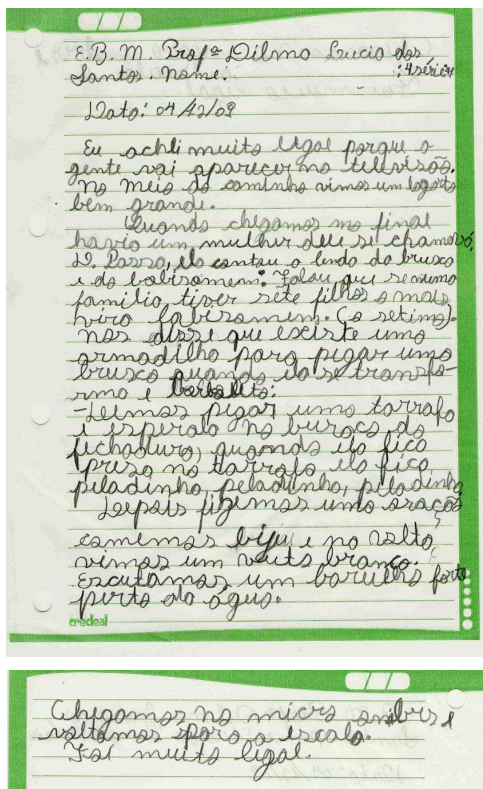 E.B.M. Profª Dilmo Lucio dos
Santos. Nome: :4série
Data: 04/12/09
Eu achei muito legal porque a
gente vai aparecer na televisão.
No meio do caminho vimos um lagarto
bem grande.
Quando chegamos no final
havia um mulher deu si chamava,
D. Rossa, ela contou a lenda da bruxa
e do lobisomem. Falou que se numa
familia, tiver sete filhos o mais
viro lobisomem. (o setimo).
nos disse que existe uma
armadilha para pigar uma
bruxa quando ela se transfo-
rma e
-Leimos pigar uma tarrafa
e esperala no buraco da
fichadura, quando ela fica
presa na tarrafa ela fica,
peladinha, peladinha, peladinha
Depois fizemos uma oração
comemos biju e na volta
vimos um vulto branco.
Escutamos um barulho forte
perto da água.
credeal
Chegamos no micro ônibus e
voltamos para a escola.
Foi muito legal.